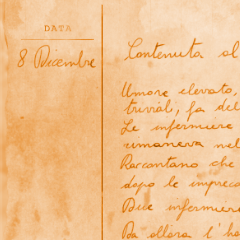 DATA
8 Dicembre
Contenuta al
Umore elevato,
trivial, fa del
Le infermiere
rimaneva nel
Raccontano che
dopo le imprec
Due infermiere
Da allora l'ha